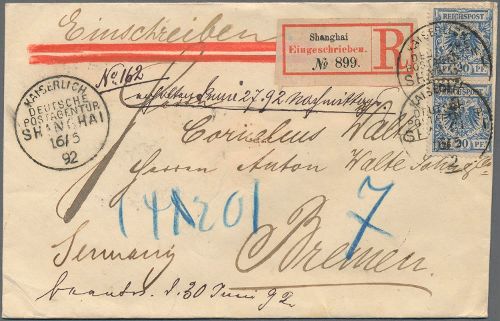 Einschreiben
Shanghai
Eingeschrieben.
№ 899.
R
REICHSPOST
20 PF.
REICHSPOST
20 PF.
No 162
KAISERLICH
DEUTSCHE
POSTAGENTUR
SHANGHAI
16/5
92
27.92 Nachmittags
Cornelius Walte
Herren Anton Walte
(41201
7
Germany
Bremen.
d. 30 Juni 92.